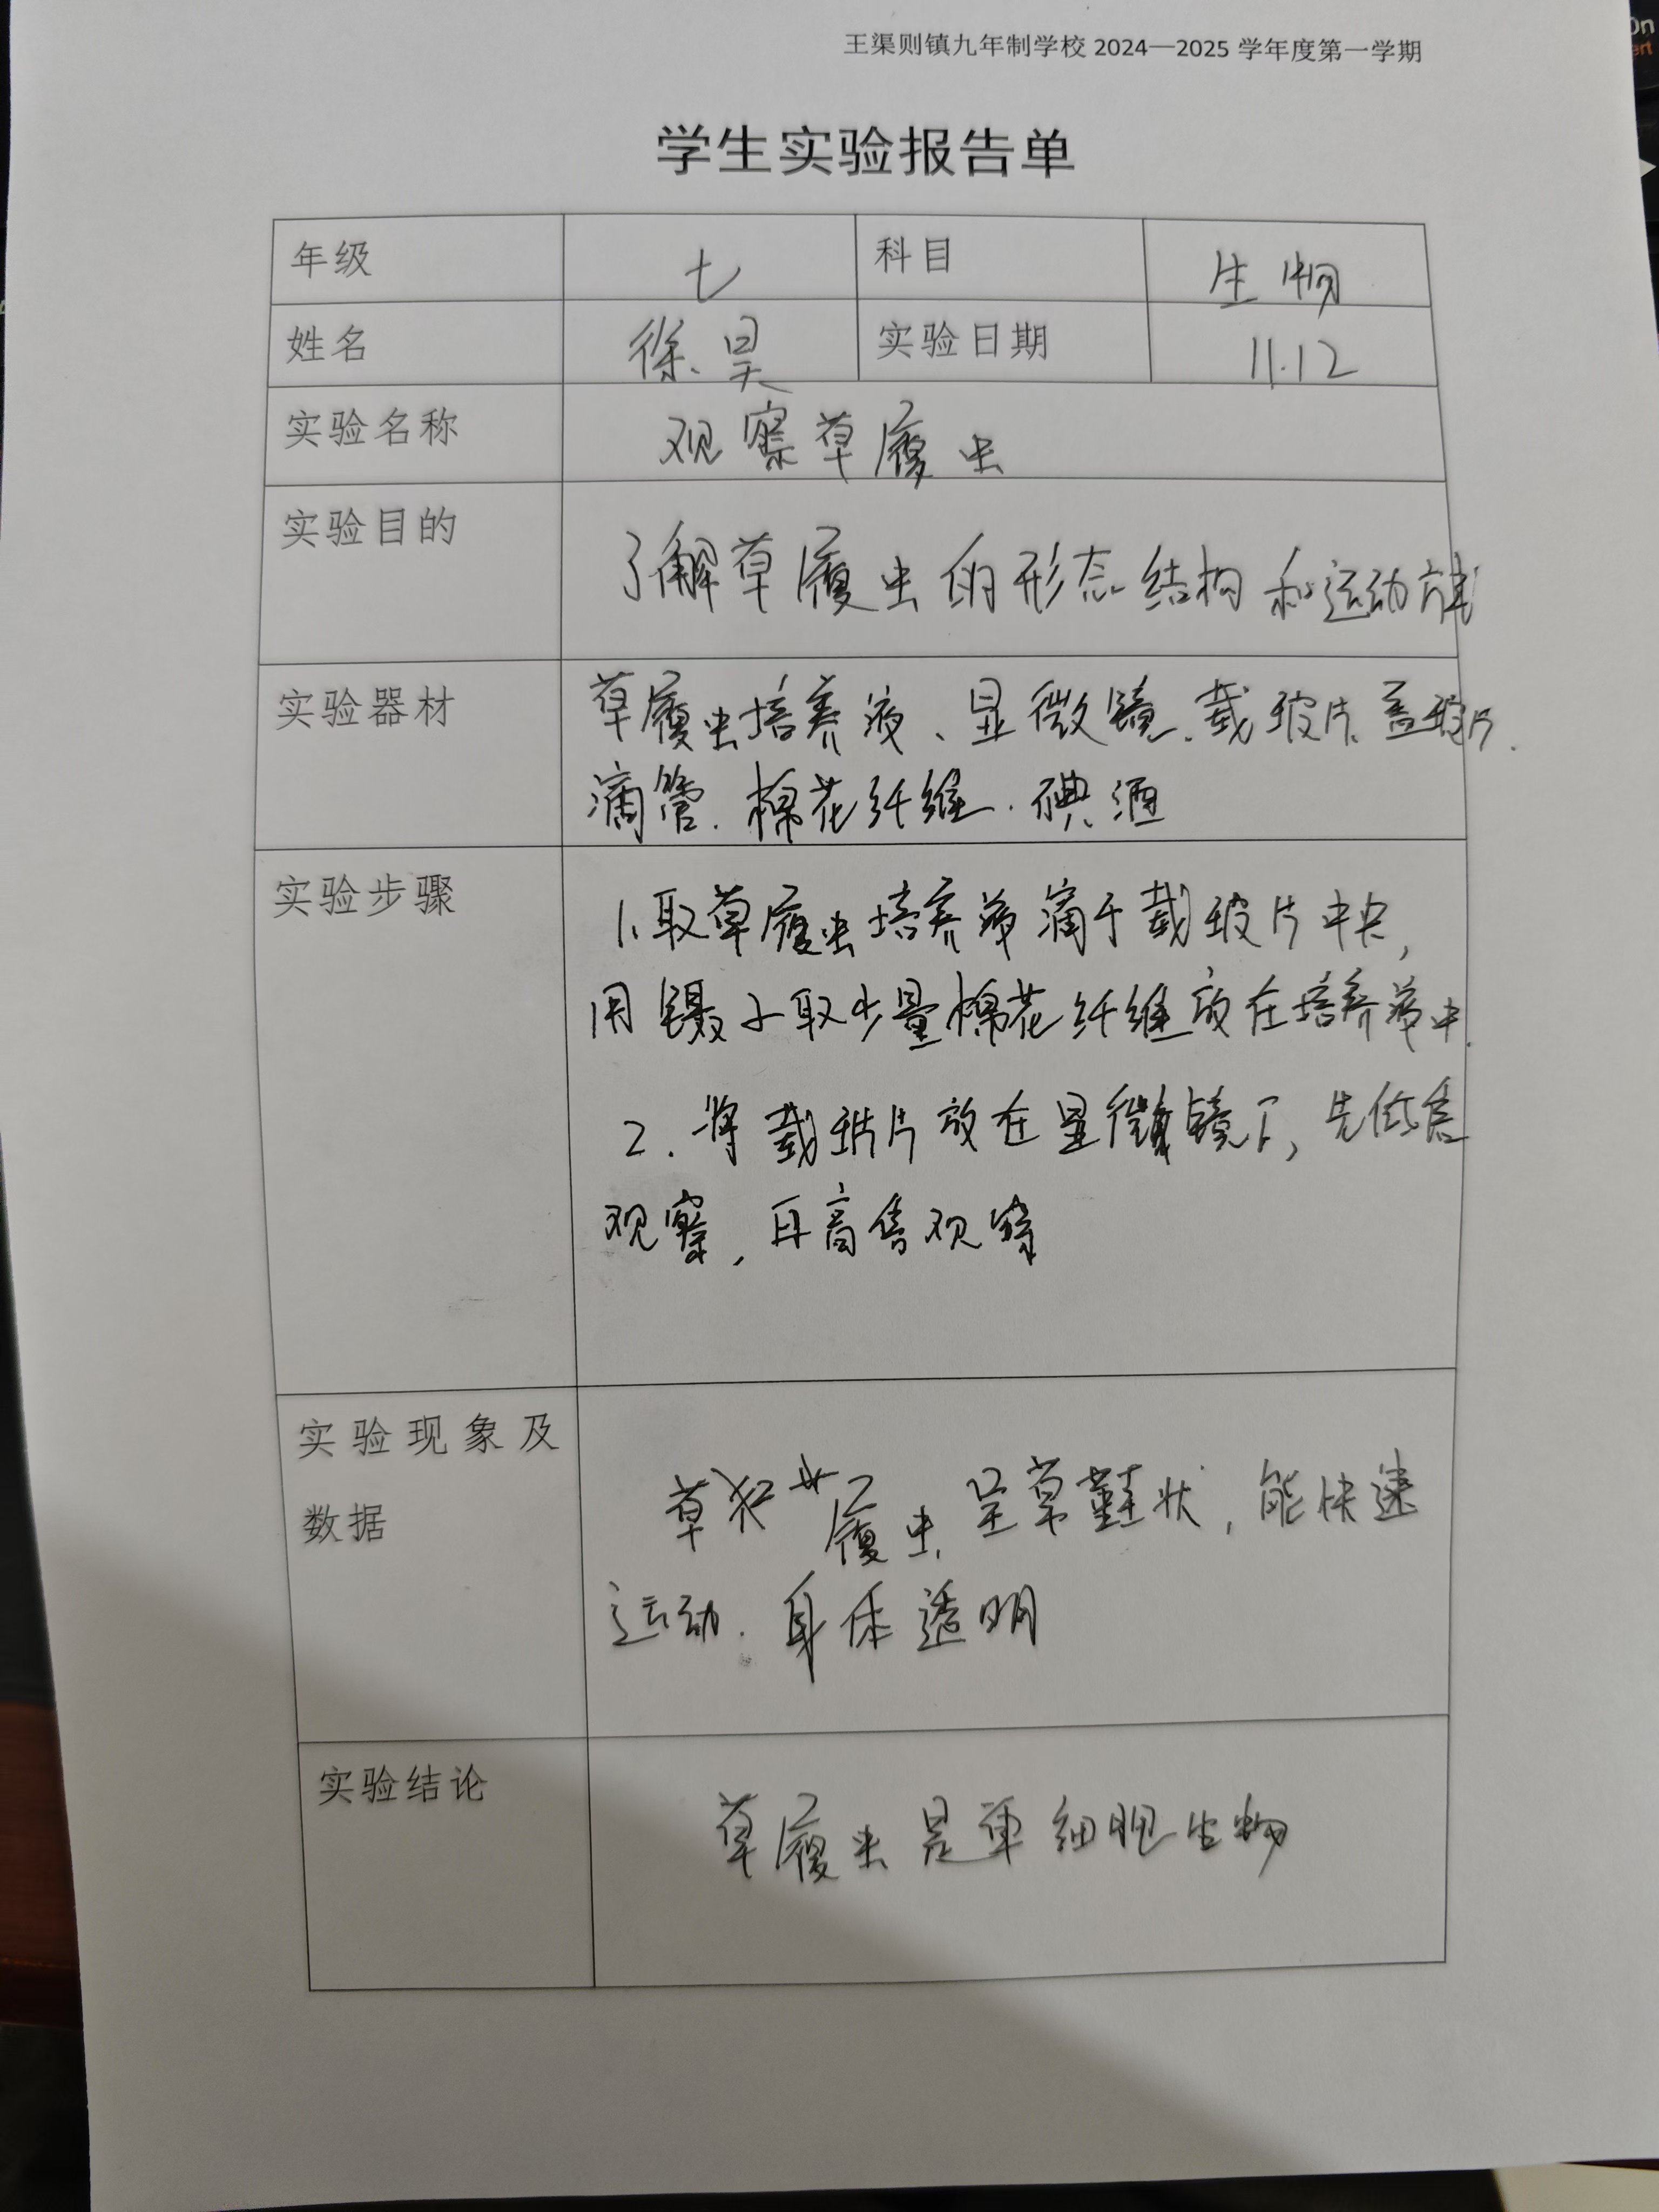 王渠则镇九年制学校 2024—2025 学年度第一学期
学生实验报告单
年级 七 科目 生物
姓名 徐昊 实验日期 11.12
实验名称 观察草履虫
实验目的 了解草履虫的形态结构和运动方式
实验器材 草履虫培养液、显微镜、载玻片、盖玻片、
滴管、棉花纤维、碘酒
实验步骤 1、取草履虫培养液滴于载玻片中央,
用镊子取少量棉花纤维放在培养液中.
2. 将载玻片放在显微镜下, 先低倍
观察, 再高倍观察
实验现象及
数据
草履虫呈草鞋状, 能快速
运动. 身体透明
实验结论 草履虫是单细胞生物